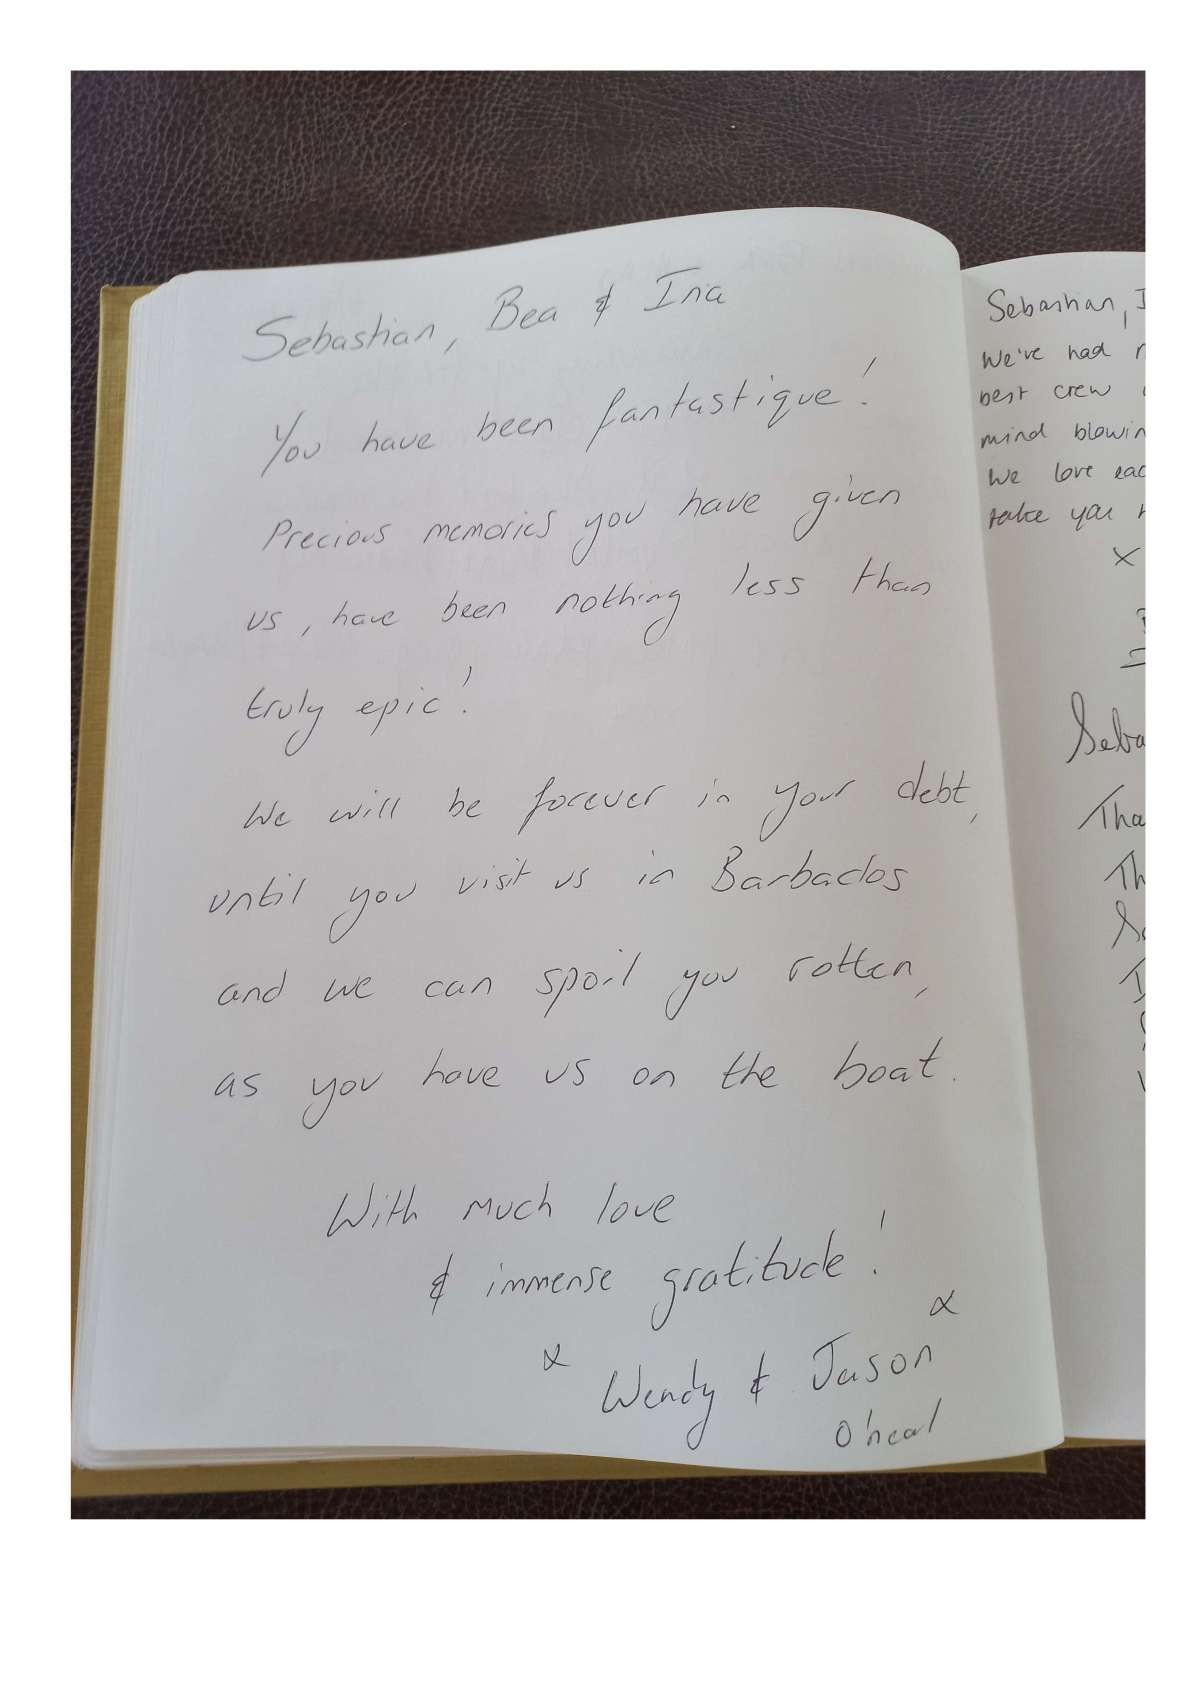 Sebastian, Bea & Ina
You have been fantastique!
Precious memories you have given
us, have been nothing less than
truly epic!
We will be forever in your debt,
until you visit us in Barbados
and we can spoil you rotten,
as you have us on the boat.
With much love
& immense gratitude!
x Wendy & Jason x
O'neal
Sebastian, I
We've had
best crew
mind blowin
We love eac
take you
x
Seba
Tha
Th